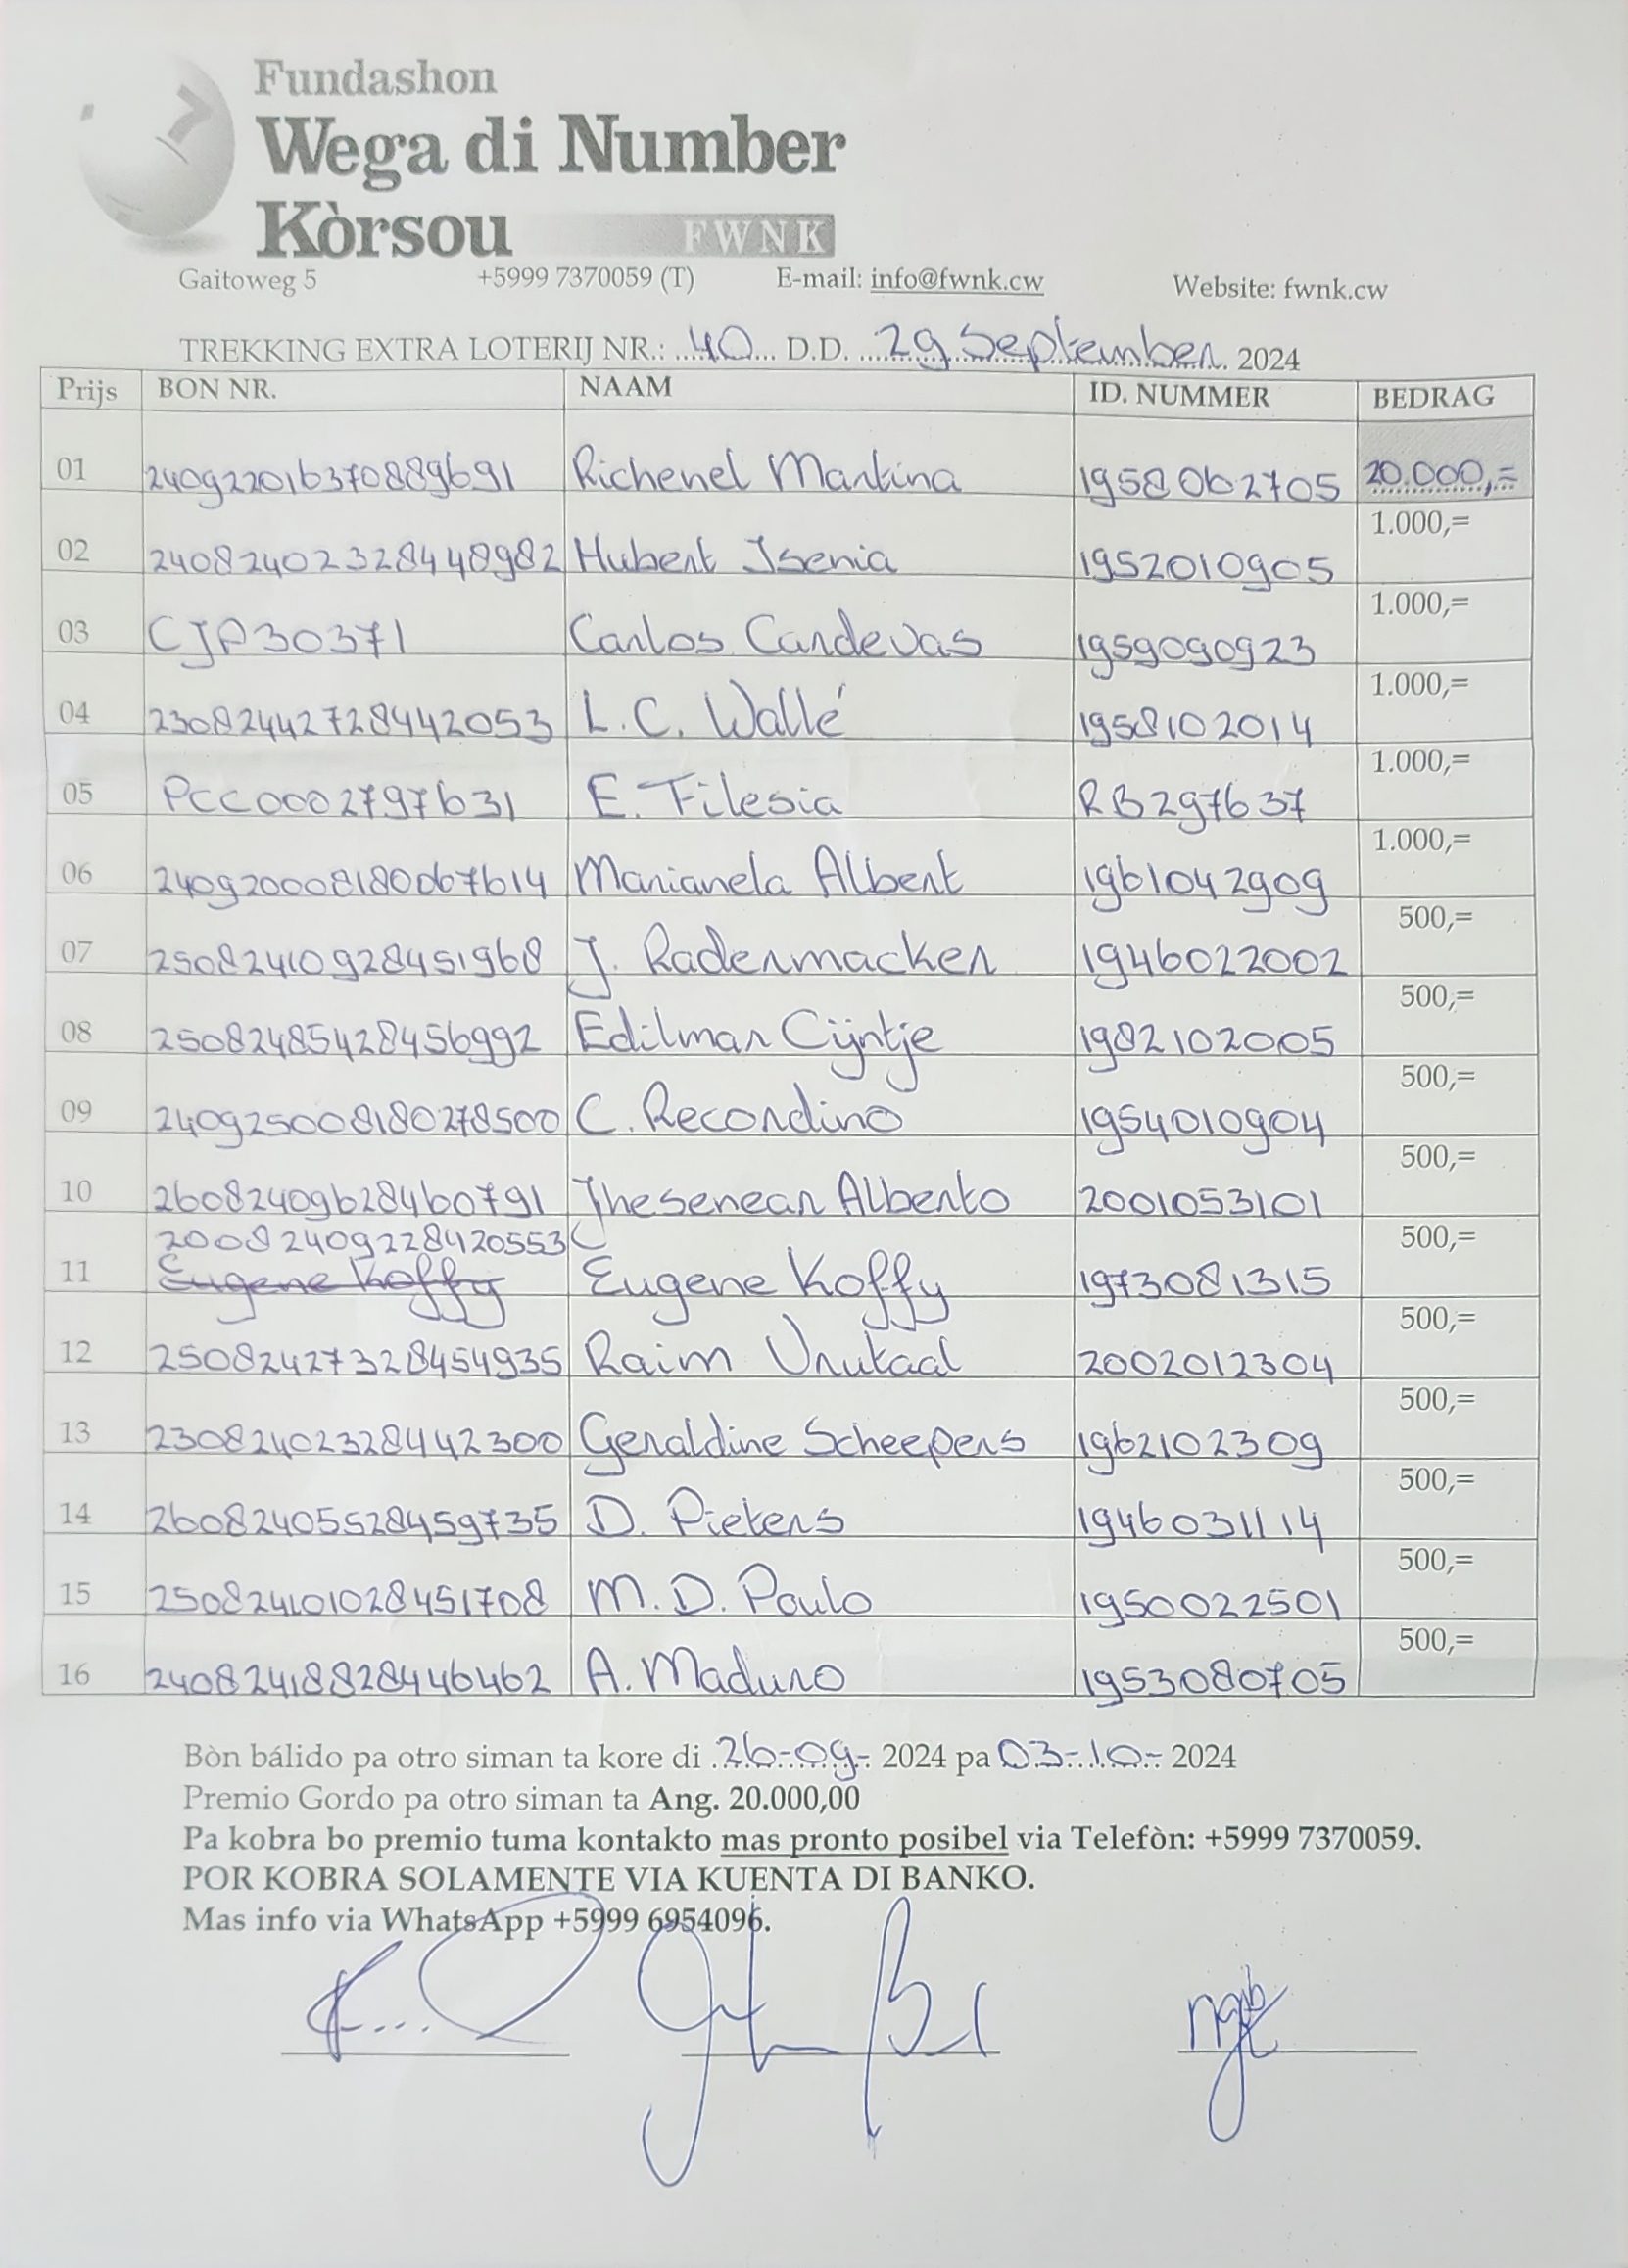 Fundashon
Wega di Number
Kòrsou FWNK
Gaitoweg 5 +5999 7370059 (T) E-mail: info@fwnk.cw Website: fwnk.cw
TREKKING EXTRA LOTERIJ NR.: 40 D.D. 29 September 2024
Prijs BON NR. NAAM ID. NUMMER BEDRAG
01 240922016370889691 Richenel Martina 1958062705 20.000,=
02 24082402328448982 Hubert Isenia 1952010905 1.000,=
03 CJP30371 Carlos Candevas 1959090923 1.000,=
04 23082442728442053 L.C. Wallé 1958102014 1.000,=
05 PCC0002797631 E. Filesia RB297637 1.000,=
06 240920008180067614 Marianela Albert 1961042909 1.000,=
07 25082410928451968 J. Radermacker 1946022002 500,=
08 25082485428456992 Edilmar Cijntje 1982102005 500,=
09 240925008180278500 C. Recordino 1954010904 500,=
10 26082409628460791 Jhesenear Alberto 2001053101 500,=
20082409228420553
11 Eugene Koffy Eugene Koffy 1973081315 500,=
12 25082427328454935 Raim Urutaal 2002012304 500,=
13 23082402328442300 Geraldine Scheepers 1962102309 500,=
14 26082405528459735 D. Pieters 1946031114 500,=
15 250824101028451708 M.D. Paulo 1950022501 500,=
16 24082418828446462 A. Maduro 1953080705 500,=
Bòn bálido pa otro siman ta kore di 26-09- 2024 pa 03-10- 2024
Premio Gordo pa otro siman ta Ang. 20.000,00
Pa kobra bo premio tuma kontakto mas pronto posibel via Telefòn: +5999 7370059.
POR KOBRA SOLAMENTE VIA KUENTA DI BANKO.
Mas info via WhatsApp +5999 6954096.